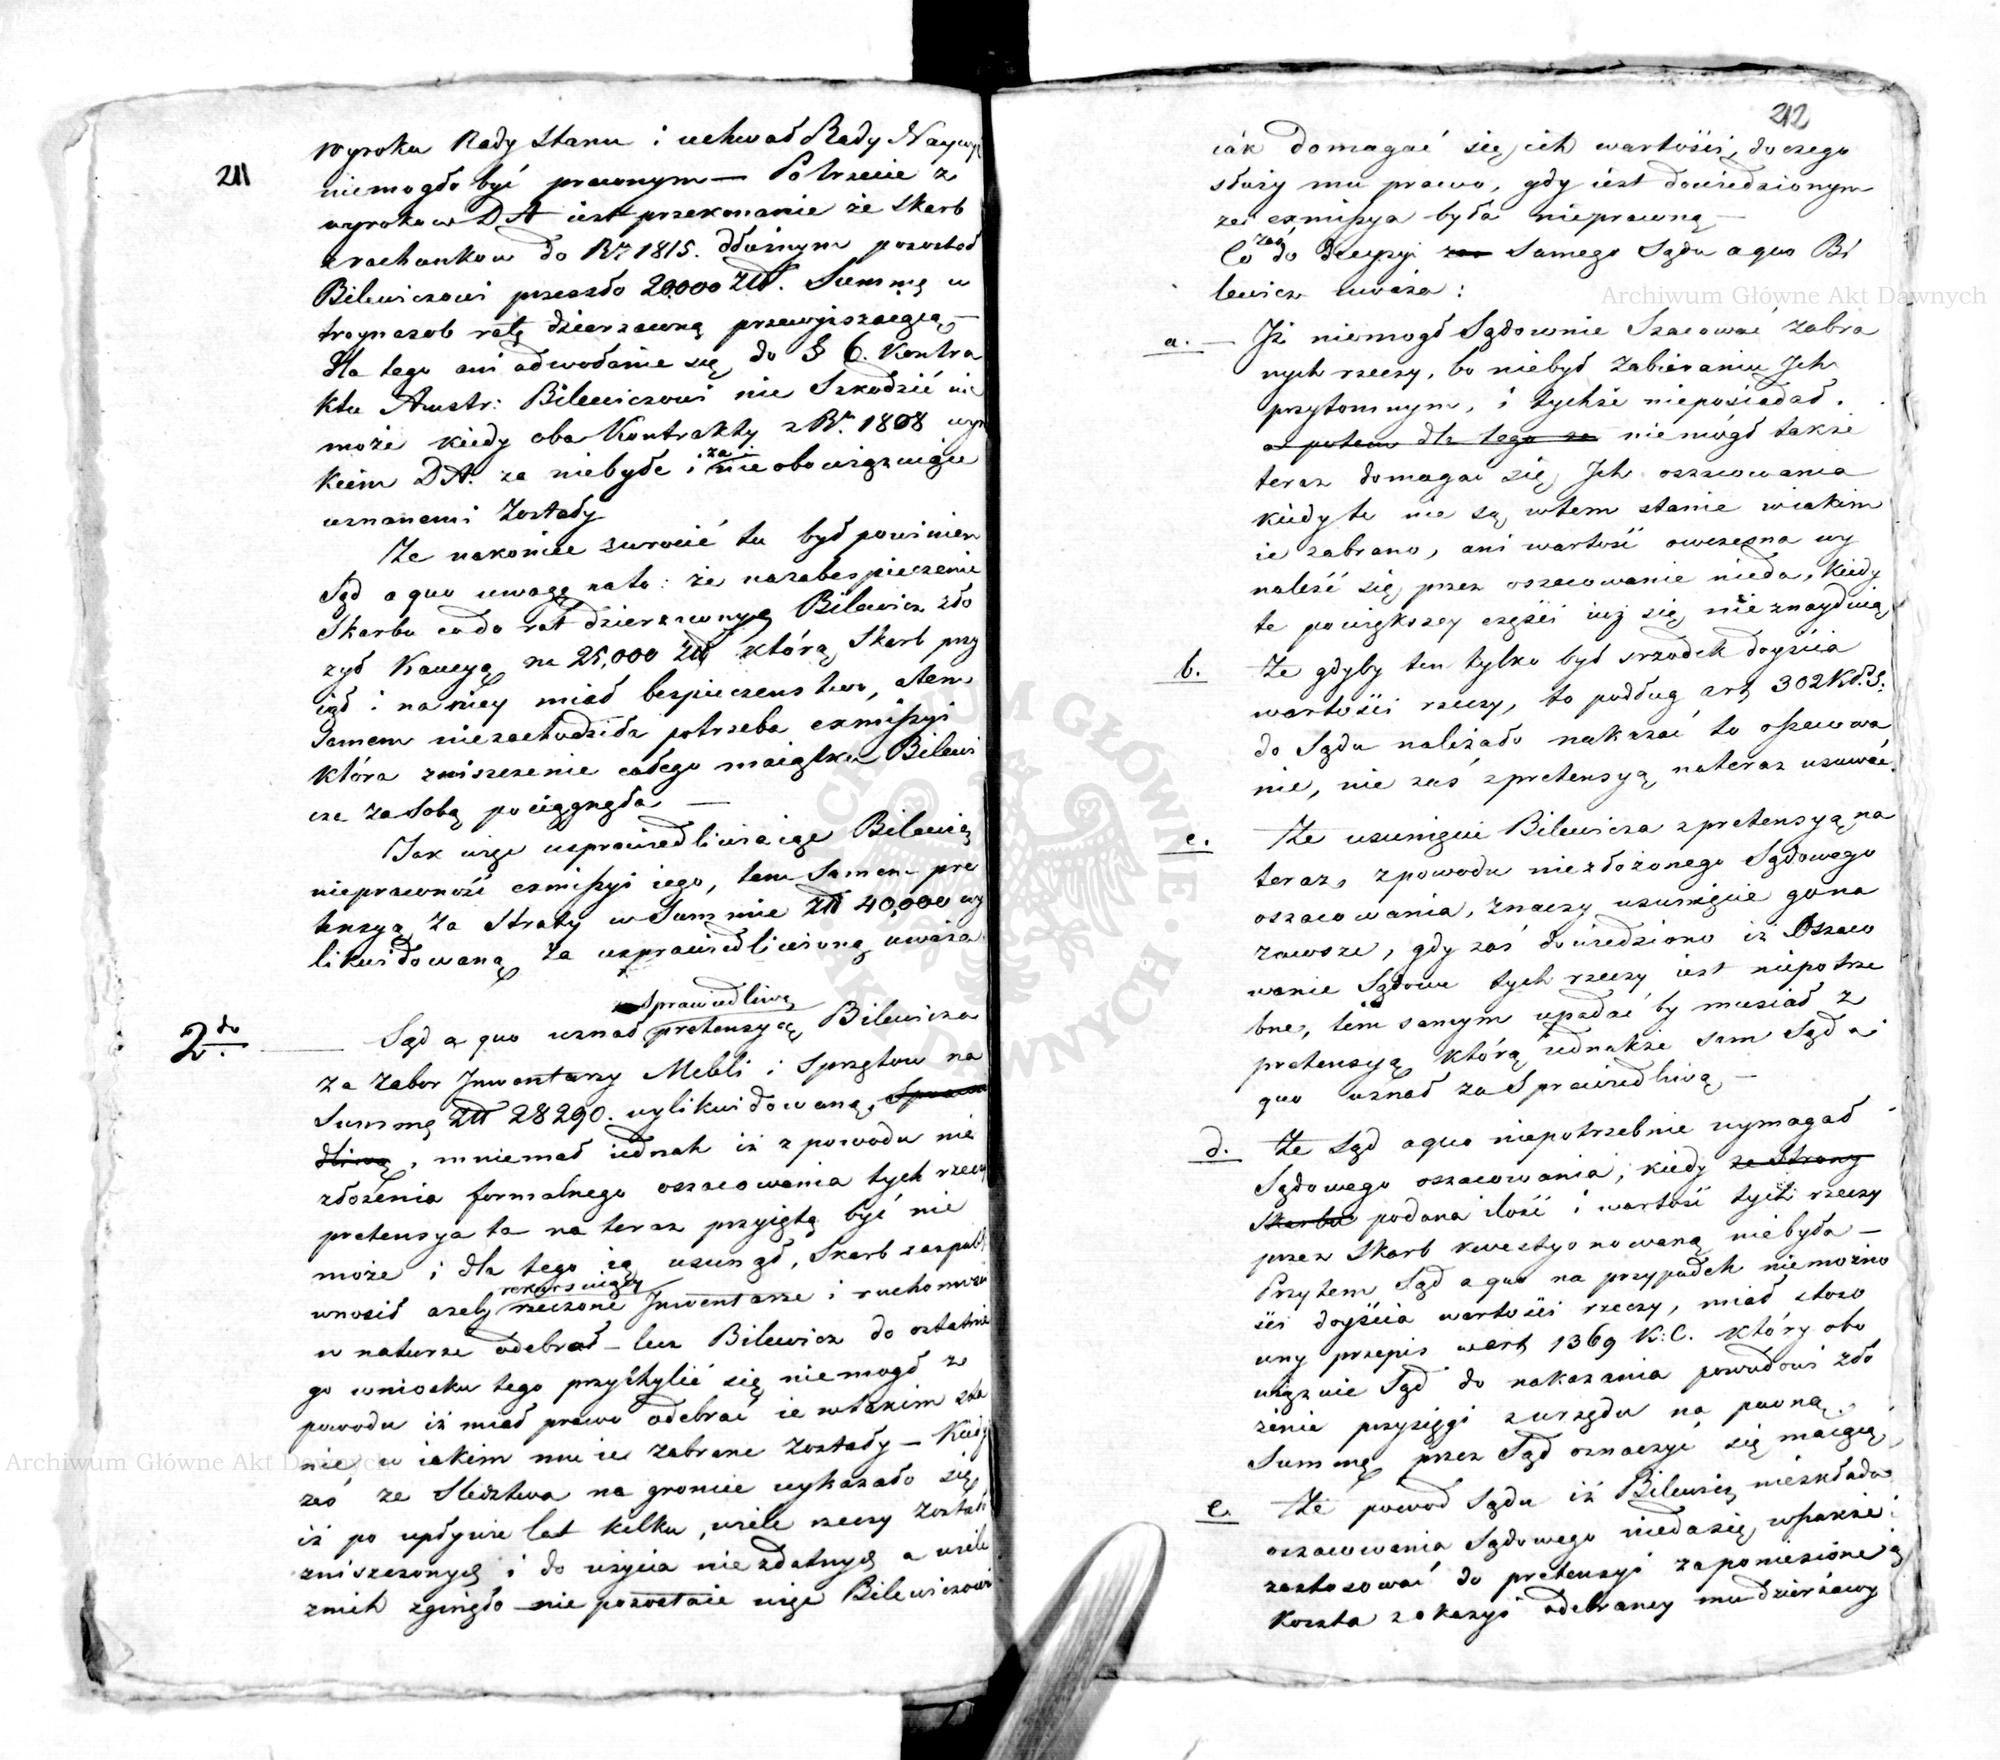 211
wyroku Rady Stanu i uchwał Rady Naywyż
niemogło być prawnym — Po trzecie z
wyroków DA iest przekonanie że Skarb
z rachunków do Rku 1815. dłużnym pozostał
Bilewiczowi przeszło 20.000 Złt. Summę w
troynasob ratę dzierzawną przewyższaiącą —
dla tego ani odwołanie się do § 6. Kontra
ktu Austr: Bilewiczowi nie Szkodzić nie
może kiedy oba Kontrakty z Rku 1808 wyro
kiem DA. za niebyłe i za nie obowięzuiące
uznanemi Zostały
Że nakoniec zwrócić tu był powinien
Sąd a quo uwagę na to: że na zabespieczenie
Skarbu co do rat dzierzawnych Bilewicz zło
żył Kaucyą na 25,000 Złt którą Skarb przy
iął i na niey miał bespieczeństwo, a tem
Samem niezachodziła potrzeba exmissyi
która zniszczenie całego maiątku Bilewi
cza za Sobą pociągnęła —
Jak więc usprawiedliwiaiąc Bilewicz
nieprawność exmissyi iego, tem Samem pre
tensyą Za Straty w Summie Złt 40,000 wy
likwidowaną za usprawiedliwioną uważa
2do. — Sąd a quo uznał sprawiedliwą pretensyą Bilewicza
za Zabor Inwentarzy Mebli i Sprzętow na
Summę Złt 28290. wylikwidowaną,
mniemał iednak iż z powodu nie
złożenia formalnego oszacowania tych rzeczy
pretensya ta na teraz przyiętą być nie
może i dla tego ią usunął, Skarb zaś
wnosił ażeby rzeczone Inwentarze i ruchomości
w naturze odebrał — lecz Bilewicz do ostatnie
go wniosku tego przychylić się niemogł z
powodu iż miał prawo odebrać ie w takim sta
nie, w iakim mu ie zabrane zostały — Kiedy
zaś ze Sledztwa na groncie wykazało się
iż po upływie lat kilku, wiele rzeczy zostało
zniszczonych i do użycia niezdatnych a wiele
z nich zginęło — nie pozostaie więc Bilewiczowi
212
iák domagać się ich wartości, do czego
służy mu prawo, gdy iest dowiedzionym
że exmissya była nieprawną —
Co zaś do decyzyi zaś Samego Sądu a quo Bi
lewicz uważa:
a. — Iż niemogł Sądownie Szacować zabra
nych rzeczy, bo niebył Zabieraniu Ich
przytomnym, i tychże nieposiadał.
a potem dla tego że niemógł także
teraz domagać się Ich oszacowania
kiedy te nie są w tem stanie w iakim
ie zabrano, ani wartość owczesna wy
naleść się przez oszacowanie nieda, kiedy
te powiększey części iuż się nie znayduią
b. Że gdyby ten tylko był srzodek doyścia
wartości rzeczy, to podług art 302 K.P.S.
do Sądu należało nakazać to oszacowa
nie, nie zaś z pretensyą na teraz usuwać.
c. Że usunięcie Bilewicza z pretensyą na
teraz, z powodu niezłożonego Sądowego
oszacowania, znaczy usunięcie go na
zawsze, gdy zaś dowiedziono iż Oszaco
wanie Sądowe tych rzeczy iest niepotrze
bne, tem samym upadać by musiał z
pretensyą, którą iednakże sam Sąd a
quo uznał za Sprawiedliwą —
d. Że Sąd a quo niepotrzebnie wymagał
Sądowego oszacowania, kiedy ze Strony
Skarbu podana ilość i wartość tych rzeczy
przez Skarb kwestyonowaną niebyła —
Przytem Sąd a quo na przypadek niemożno
ści doyścia wartości rzeczy, miał stoso
wny przepis w art 1369 K:C. który obo
więzuie Sąd do nakazania powodowi zło
żenia przysięgi z urzędu na pewną
Summę przez Sąd oznaczyć się maiącą
e. Że powod Sądu iż Bilewicz nieskłada
oszacowania Sądowego nieda się wszakże
zastosować do pretensyi za poniesione
koszta z okazyi odebraney mu dzierżawy
Archiwum Główne Akt Dawnych
Archiwum Główne Akt Dawnych
ARCHIWUM GŁÓWNE AKT DAWNYCH